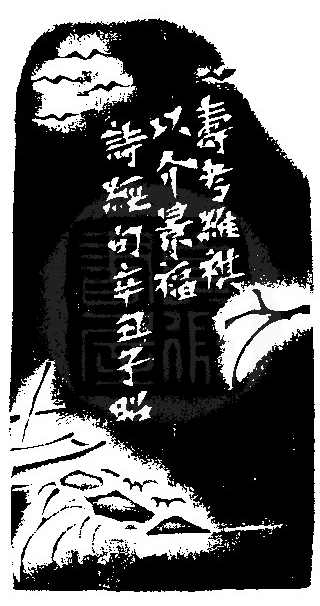 壽考維祺
以介景福
詩經句辛丑子昭